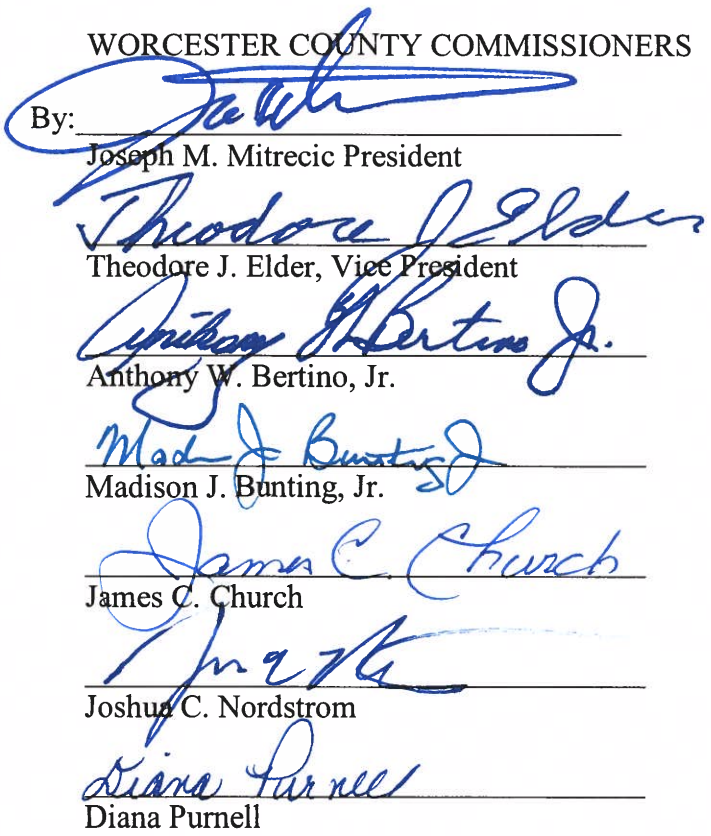 WORCESTER COUNTY COMMISSIONERS
By:
Joseph M. Mitrecic President
Theodore J Elder
Theodore J. Elder, Vice President
Anthony W Bertino Jr.
Anthony W. Bertino, Jr.
Bunting Jr
Madison J. Bunting, Jr.
James C. Church
James C. Church
Joshua C. Nordstrom
Diana Purnell
Diana Purnell